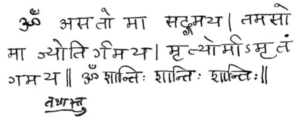 ॐ असतो मा सद्गमय। तमसो
मा ज्योतिर्गमय। मृत्योर्माऽमृतं
गमय॥ ॐ शान्तिः शान्तिः शान्तिः॥
तथास्तु